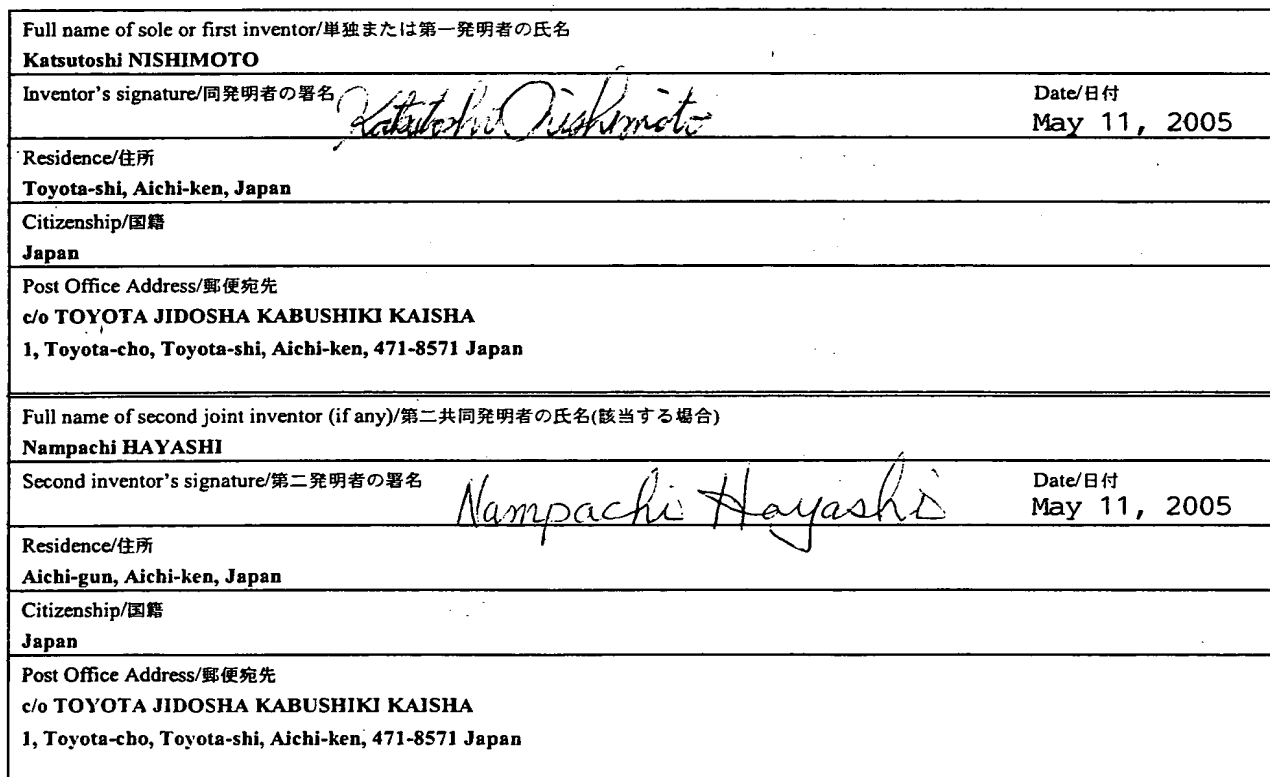 Full name of sole or first inventor/単独または第一発明者の氏名
Katsutoshi NISHIMOTO
Inventor's signature/同発明者の署名 Katsutoshi Nishimoto Date/日付
May 11, 2005
Residence/住所
Toyota-shi, Aichi-ken, Japan
Citizenship/国籍
Japan
Post Office Address/郵便宛先
c/o TOYOTA JIDOSHA KABUSHIKI KAISHA
1, Toyota-cho, Toyota-shi, Aichi-ken, 471-8571 Japan
Full name of second joint inventor (if any)/第二共同発明者の氏名(該当する場合)
Nampachi HAYASHI
Second inventor's signature/第二発明者の署名 Nampachi Hayashi Date/日付
May 11, 2005
Residence/住所
Aichi-gun, Aichi-ken, Japan
Citizenship/国籍
Japan
Post Office Address/郵便宛先
c/o TOYOTA JIDOSHA KABUSHIKI KAISHA
1, Toyota-cho, Toyota-shi, Aichi-ken, 471-8571 Japan